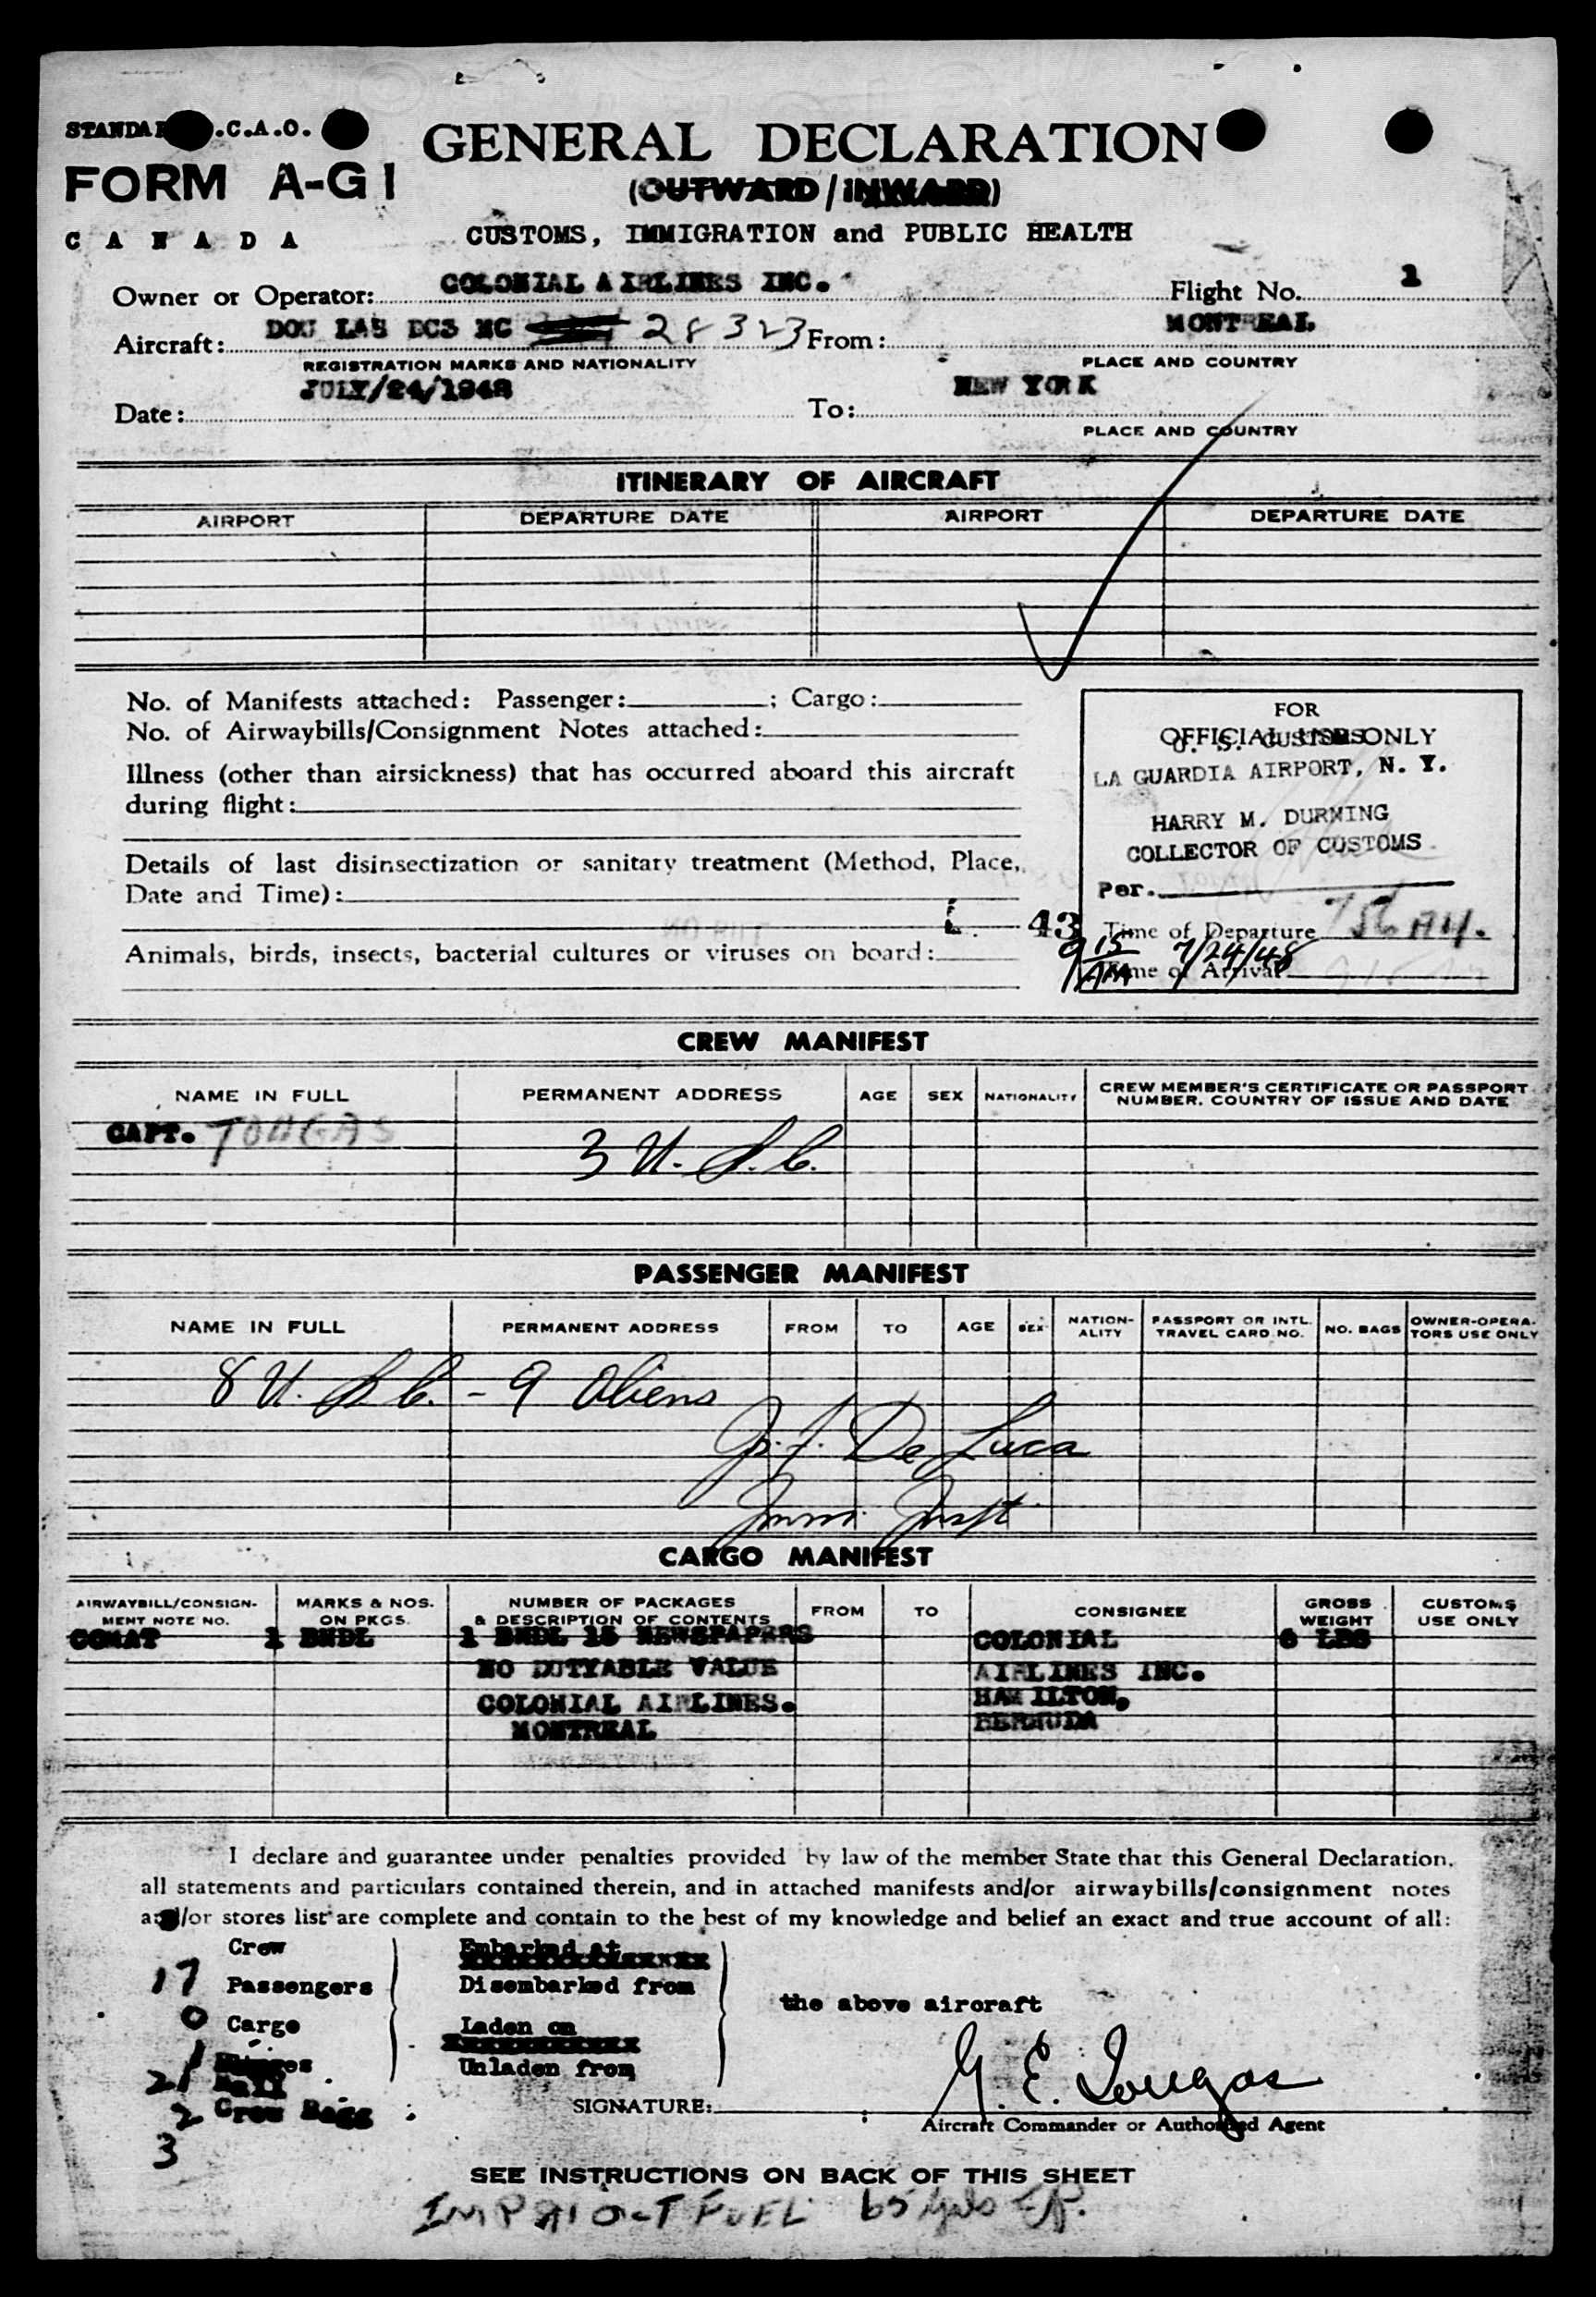 STANDA .C.A.O.
FORM A-G1
CANADA
GENERAL DECLARATION
(OUTWARD/INWARD)
CUSTOMS, IMMIGRATION and PUBLIC HEALTH
Owner or Operator: COLONIAL AIRLINES INC. Flight No. 1
Aircraft: DOU LAS DC3 NC 28323 From: MONTREAL
REGISTRATION MARKS AND NATIONALITY PLACE AND COUNTRY
Date: JULY/24/1948 To: NEW YORK
PLACE AND COUNTRY
ITINERARY OF AIRCRAFT
AIRPORT DEPARTURE DATE AIRPORT DEPARTURE DATE
No. of Manifests attached: Passenger: ; Cargo:
No. of Airwaybills/Consignment Notes attached:
Illness (other than airsickness) that has occurred aboard this aircraft
during flight:
Details of last disinsectization or sanitary treatment (Method, Place,
Date and Time):
Animals, birds, insects, bacterial cultures or viruses on board:
FOR
OFFICIAL USE ONLY
U. S. CUSTOMS
LA GUARDIA AIRPORT, N. Y.
HARRY M. DURNING
COLLECTOR OF CUSTOMS
Per.
43
Time of Departure 756 AM.
Time of Arrival
9 15 AM 7/24/48
CREW MANIFEST
NAME IN FULL PERMANENT ADDRESS AGE SEX NATIONALITY CREW MEMBER'S CERTIFICATE OR PASSPORT
NUMBER, COUNTRY OF ISSUE AND DATE
CAPT. TOUGAS
3 U. S. C.
PASSENGER MANIFEST
NAME IN FULL PERMANENT ADDRESS FROM TO AGE SEX NATION-
ALITY PASSPORT OR INTL.
TRAVEL CARD NO. NO. BAGS OWNER-OPERA-
TORS USE ONLY
8 U. S. C. - 9 Aliens
De Luca
Imm. Inspt
CARGO MANIFEST
AIRWAYBILL/CONSIGN-
MENT NOTE NO. MARKS & NOS.
ON PKGS. NUMBER OF PACKAGES
& DESCRIPTION OF CONTENTS FROM TO CONSIGNEE GROSS
WEIGHT CUSTOMS
USE ONLY
COMAT 1 BNDL 1 BNDL 15 NEWSPAPERS COLONIAL 6 LBS
NO DUTYABLE VALUE AIRLINES INC.
COLONIAL AIRLINES. HAMILTON,
MONTREAL BERMUDA
I declare and guarantee under penalties provided by law of the member State that this General Declaration,
all statements and particulars contained therein, and in attached manifests and/or airwaybills/consignment notes
and/or stores list are complete and contain to the best of my knowledge and belief an exact and true account of all:
Crew Embarked at
17 Passengers Disembarked from
the above aircraft
0 Cargo Laden on
1 Unladen from
21 Mail
2 Crew Bags
3
SIGNATURE: G. E. Tougas
Aircraft Commander or Authorized Agent
SEE INSTRUCTIONS ON BACK OF THIS SHEET
FUEL 65